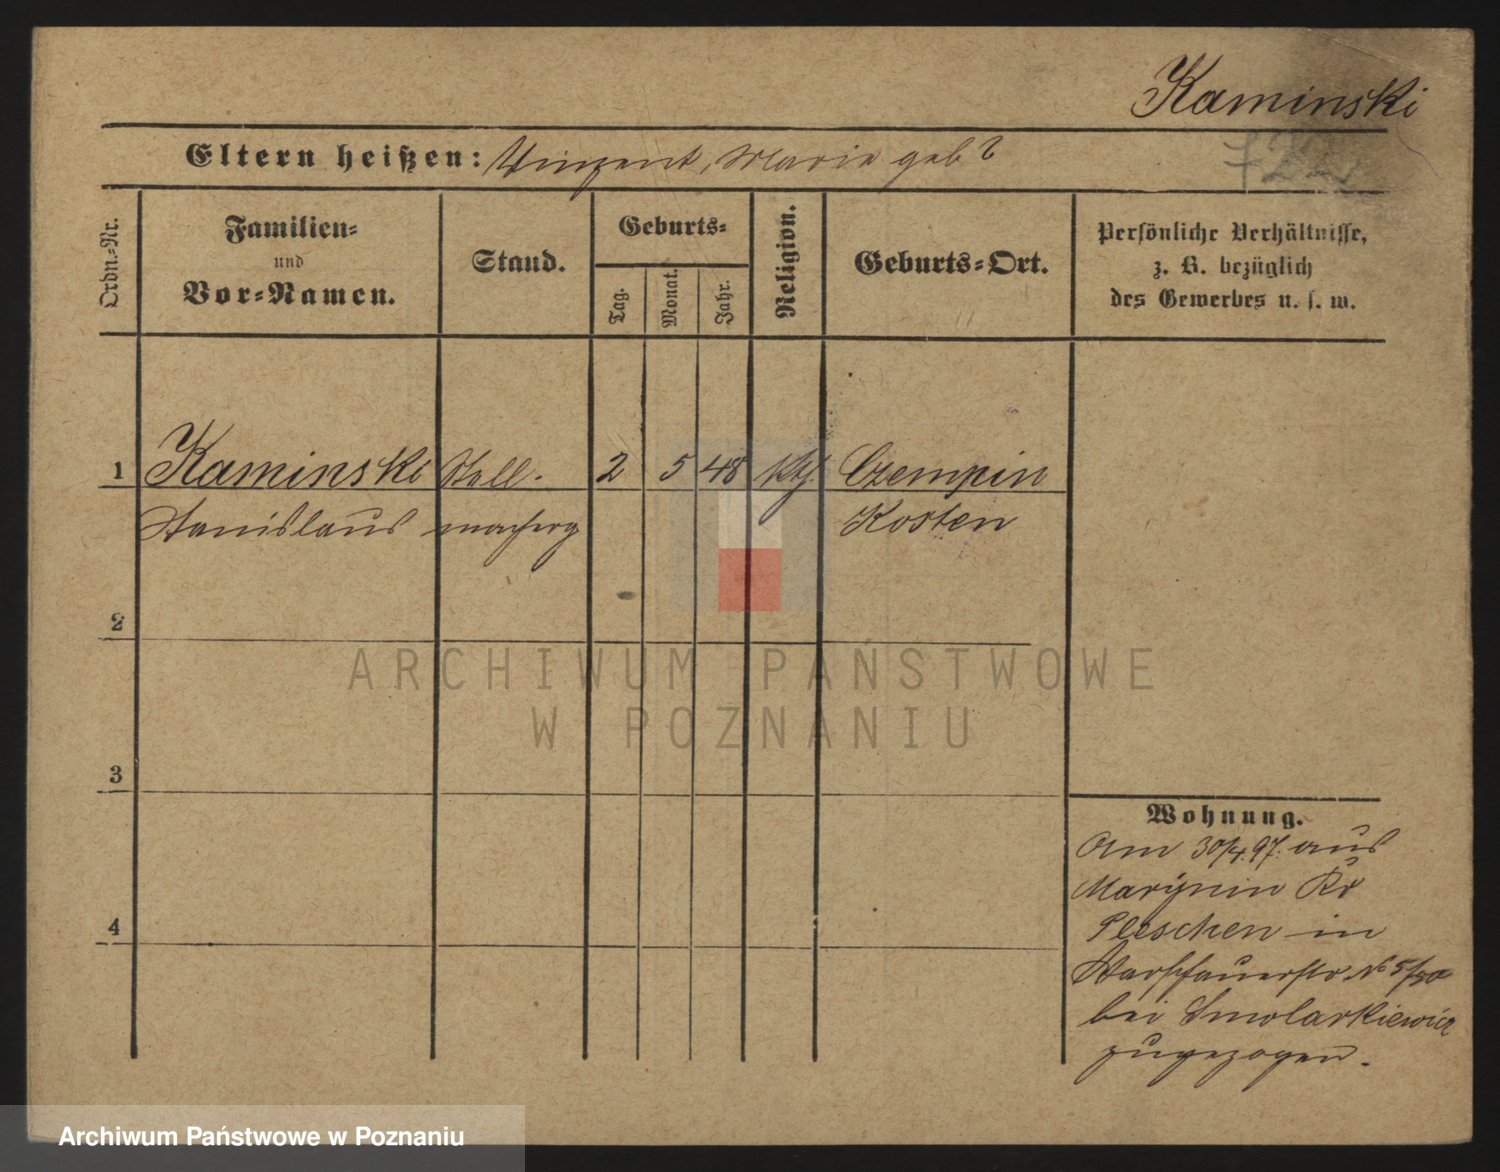 Kaminski
Eltern heißen: Vinzent, Marie geb ?
722
Ordn.-Nr.
Familien-
und
Vor-Namen.
Stand.
Geburts-
Tag.
Monat.
Jahr.
Religion.
Geburts-Ort.
Persönliche Verhältnisse,
z. B. bezüglich
des Gewerbes u. s. w.
1 Kaminski Stell- 2 5 48 kth. Czempin
Stanislaus macherg Kosten
2
3
4
Wohnung.
Am 30/4.97. aus
Marynin Kr
Pleschen in
Warschauerstr. No 5/
bei Smolarkiewicz
zugezogen.
ARCHIWUM PAŃSTWOWE
W POZNANIU
Archiwum Państwowe w Poznaniu